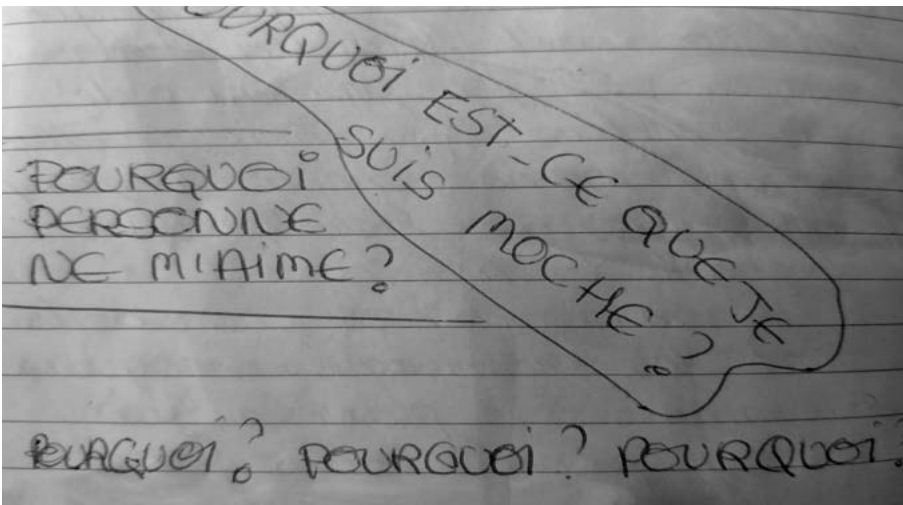 POURQUOI EST-CE QUE JE
SUIS MOCHE ?
POURQUOI
PERSONNE
NE M'AIME ?
POURQUOI ? POURQUOI ? POURQUOI ?